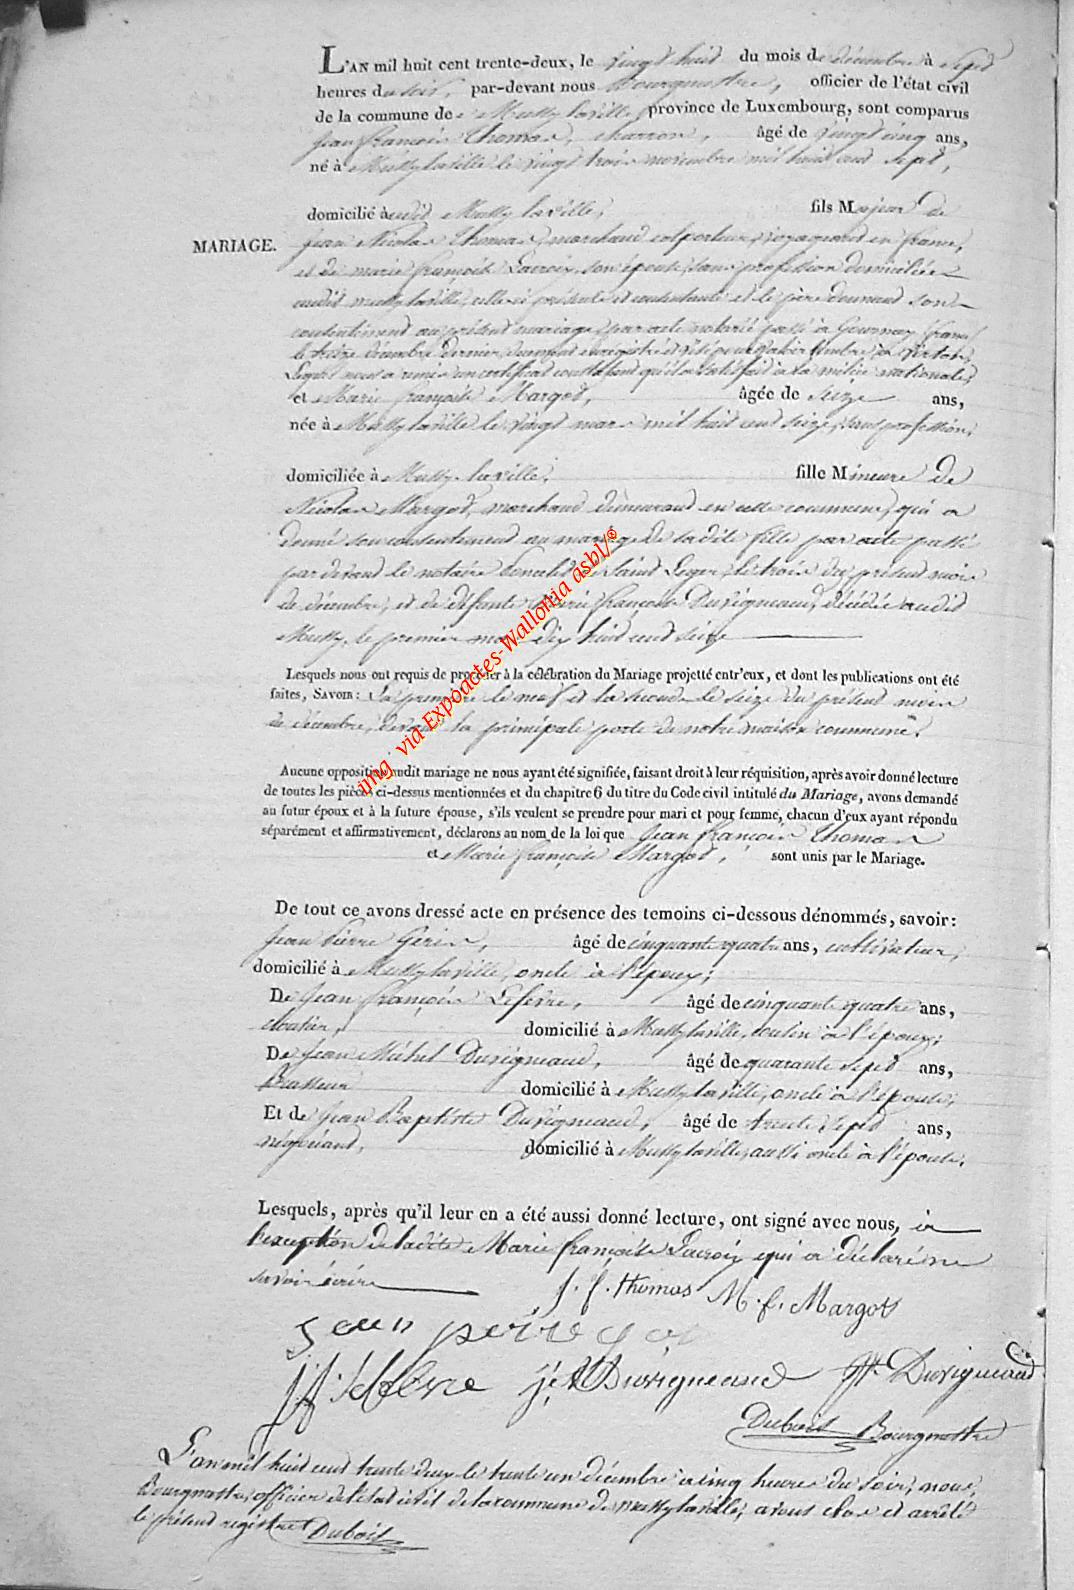 L'AN mil huit cent trente-deux, le vingt huit du mois de décembre à sept
heures du soir, par-devant nous Bourgmestre, officier de l'état civil
de la commune de Mussy laville, province de Luxembourg, sont comparus
Jean françois Thomas, charron, âgé de vingt cinq ans,
né à Mussy laville le vingt trois novembre mil huit cent sept,
domicilié audit Mussy laville, fils Majeur de
MARIAGE.
Jean Nicolas Thomas, marchand colporteur, voyageant en france,
et de marie françoise Lacroix, son épouse, sans profession domiciliée
audit mussy laville, celle ci présente et consentante et le père donnant son
consentement au présent mariage, par acte notarié passé à Gournay (france)
le treize décembre dernier, dument enregistré et visé pour valoir timbre à Virton,
Lequel nous a remis un certificat constatant qu'il a satisfait à la milice nationale,
et Marie françoise Margot, âgée de seize ans,
née à Mussy laville le vingt mars mil huit cent seize, sans profession,
domiciliée à Mussy-laville, fille Mineure de
Nicolas Margot, marchand demeurant en cette commune, qui a
donné son consentement au mariage de sadite fille par acte passé
par devant le notaire de Saint Leger, le trois du présent mois
de décembre, et de défunte Marie françoise Duvigneaud, décédée audit
Mussy, le premier mai dix huit cent seize
Lesquels nous ont requis de procéder à la célébration du Mariage projetté entr'eux, et dont les publications ont été
faites, SAVOIR : La première le neuf et la seconde le seize du présent mois
de décembre, devant la principale porte de notre maison commune.
Aucune opposition audit mariage ne nous ayant été signifiée, faisant droit à leur réquisition, après avoir donné lecture
de toutes les pièces ci-dessus mentionnées et du chapitre 6 du titre du Code civil intitulé du Mariage, avons demandé
au futur époux et à la future épouse, s'ils veulent se prendre pour mari et pour femme, chacun d'eux ayant répondu
séparément et affirmativement, déclarons au nom de la loi que Jean françois Thomas
et Marie françoise Margot, sont unis par le Mariage.
De tout ce avons dressé acte en présence des temoins ci-dessous dénommés, savoir :
Jean Pierre Gérin, âgé de cinquante quatre ans, cultivateur,
domicilié à Mussy laville, oncle à l'époux;
De Jean françois Lefèvre, âgé de cinquante quatre ans,
cloutier, domicilié à Mussy laville, cousin à l'époux;
De Jean Michel Duvigneaud, âgé de quarante sept ans,
Brasseur domicilié à Mussy laville, oncle à l'épouse;
Et de Jean Baptiste Duvigneaud, âgé de trente sept ans,
négociant, domicilié à Mussy laville, aussi oncle à l'épouse.
Lesquels, après qu'il leur en a été aussi donné lecture, ont signé avec nous, à
l'exception de ladite Marie françoise Lacroix qui a déclaré ne
savoir écrire
J. f. thomas M. f. Margot
Jean pierre
J f lefèvre j. M Duvigneaud JB Duvigneaud
Dubois Bourgmestre
L'an mil huit cent trente deux le trente un décembre à cinq heures du soir, nous,
Bourgmestre, officier de l'état civil de la commune de Mussy laville, avons clos et arrêté
le présent registre Dubois
img via Expoactes-Wallonia asbl/©